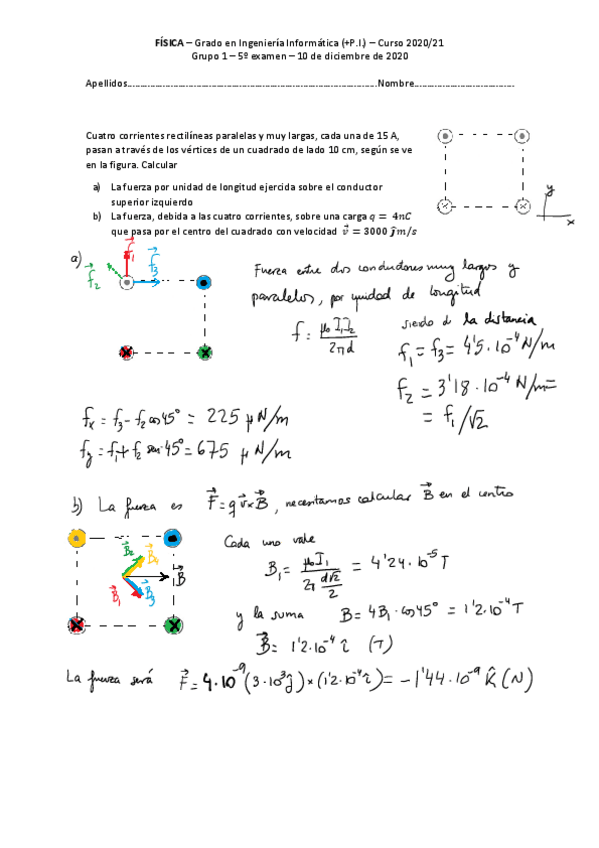 FÍSICA – Grado en Ingeniería Informática (+P.I.) – Curso 2020/21
Grupo 1 – 5º examen – 10 de diciembre de 2020
Apellidos..........................................................................................Nombre....................................
Cuatro corrientes rectilíneas paralelas y muy largas, cada una de 15 A,
pasan a través de los vértices de un cuadrado de lado 10 cm, según se ve
en la figura. Calcular
a) La fuerza por unidad de longitud ejercida sobre el conductor
superior izquierdo
b) La fuerza, debida a las cuatro corrientes, sobre una carga q = 4nC
que pasa por el centro del cuadrado con velocidad v⃗ = 3000 ĵ m/s
y
x
a)
f⃗₁
f⃗₂
f⃗₃
Fuerza entre dos conductores muy largos y
paralelos, por unidad de longitud
f = μ₀ I₁ I₂ / 2πd
siendo d la distancia
f₁ = f₃ = 4'5·10⁻⁴ N/m
f₂ = 3'18·10⁻⁴ N/m =
= f₁/√2
fₓ = f₃ - f₂ cos45° = 225 μN/m
f_y = f₁ + f₂ sen 45° = 675 μN/m
b) La fuerza es F⃗ = q v⃗ × B⃗, necesitamos calcular B⃗ en el centro
B⃗₂
B⃗₄
B⃗
B⃗₁
B⃗₃
Cada uno vale
B₁ = μ₀ I₁ / 2π (d√2/2) = 4'24·10⁻⁵ T
y la suma B = 4B₁·cos45° = 1'2·10⁻⁴ T
B⃗ = 1'2·10⁻⁴ î (T)
La fuerza será F⃗ = 4·10⁻⁹ (3·10³ ĵ) × (1'2·10⁻⁴ î) = -1'44·10⁻⁹ k̂ (N)